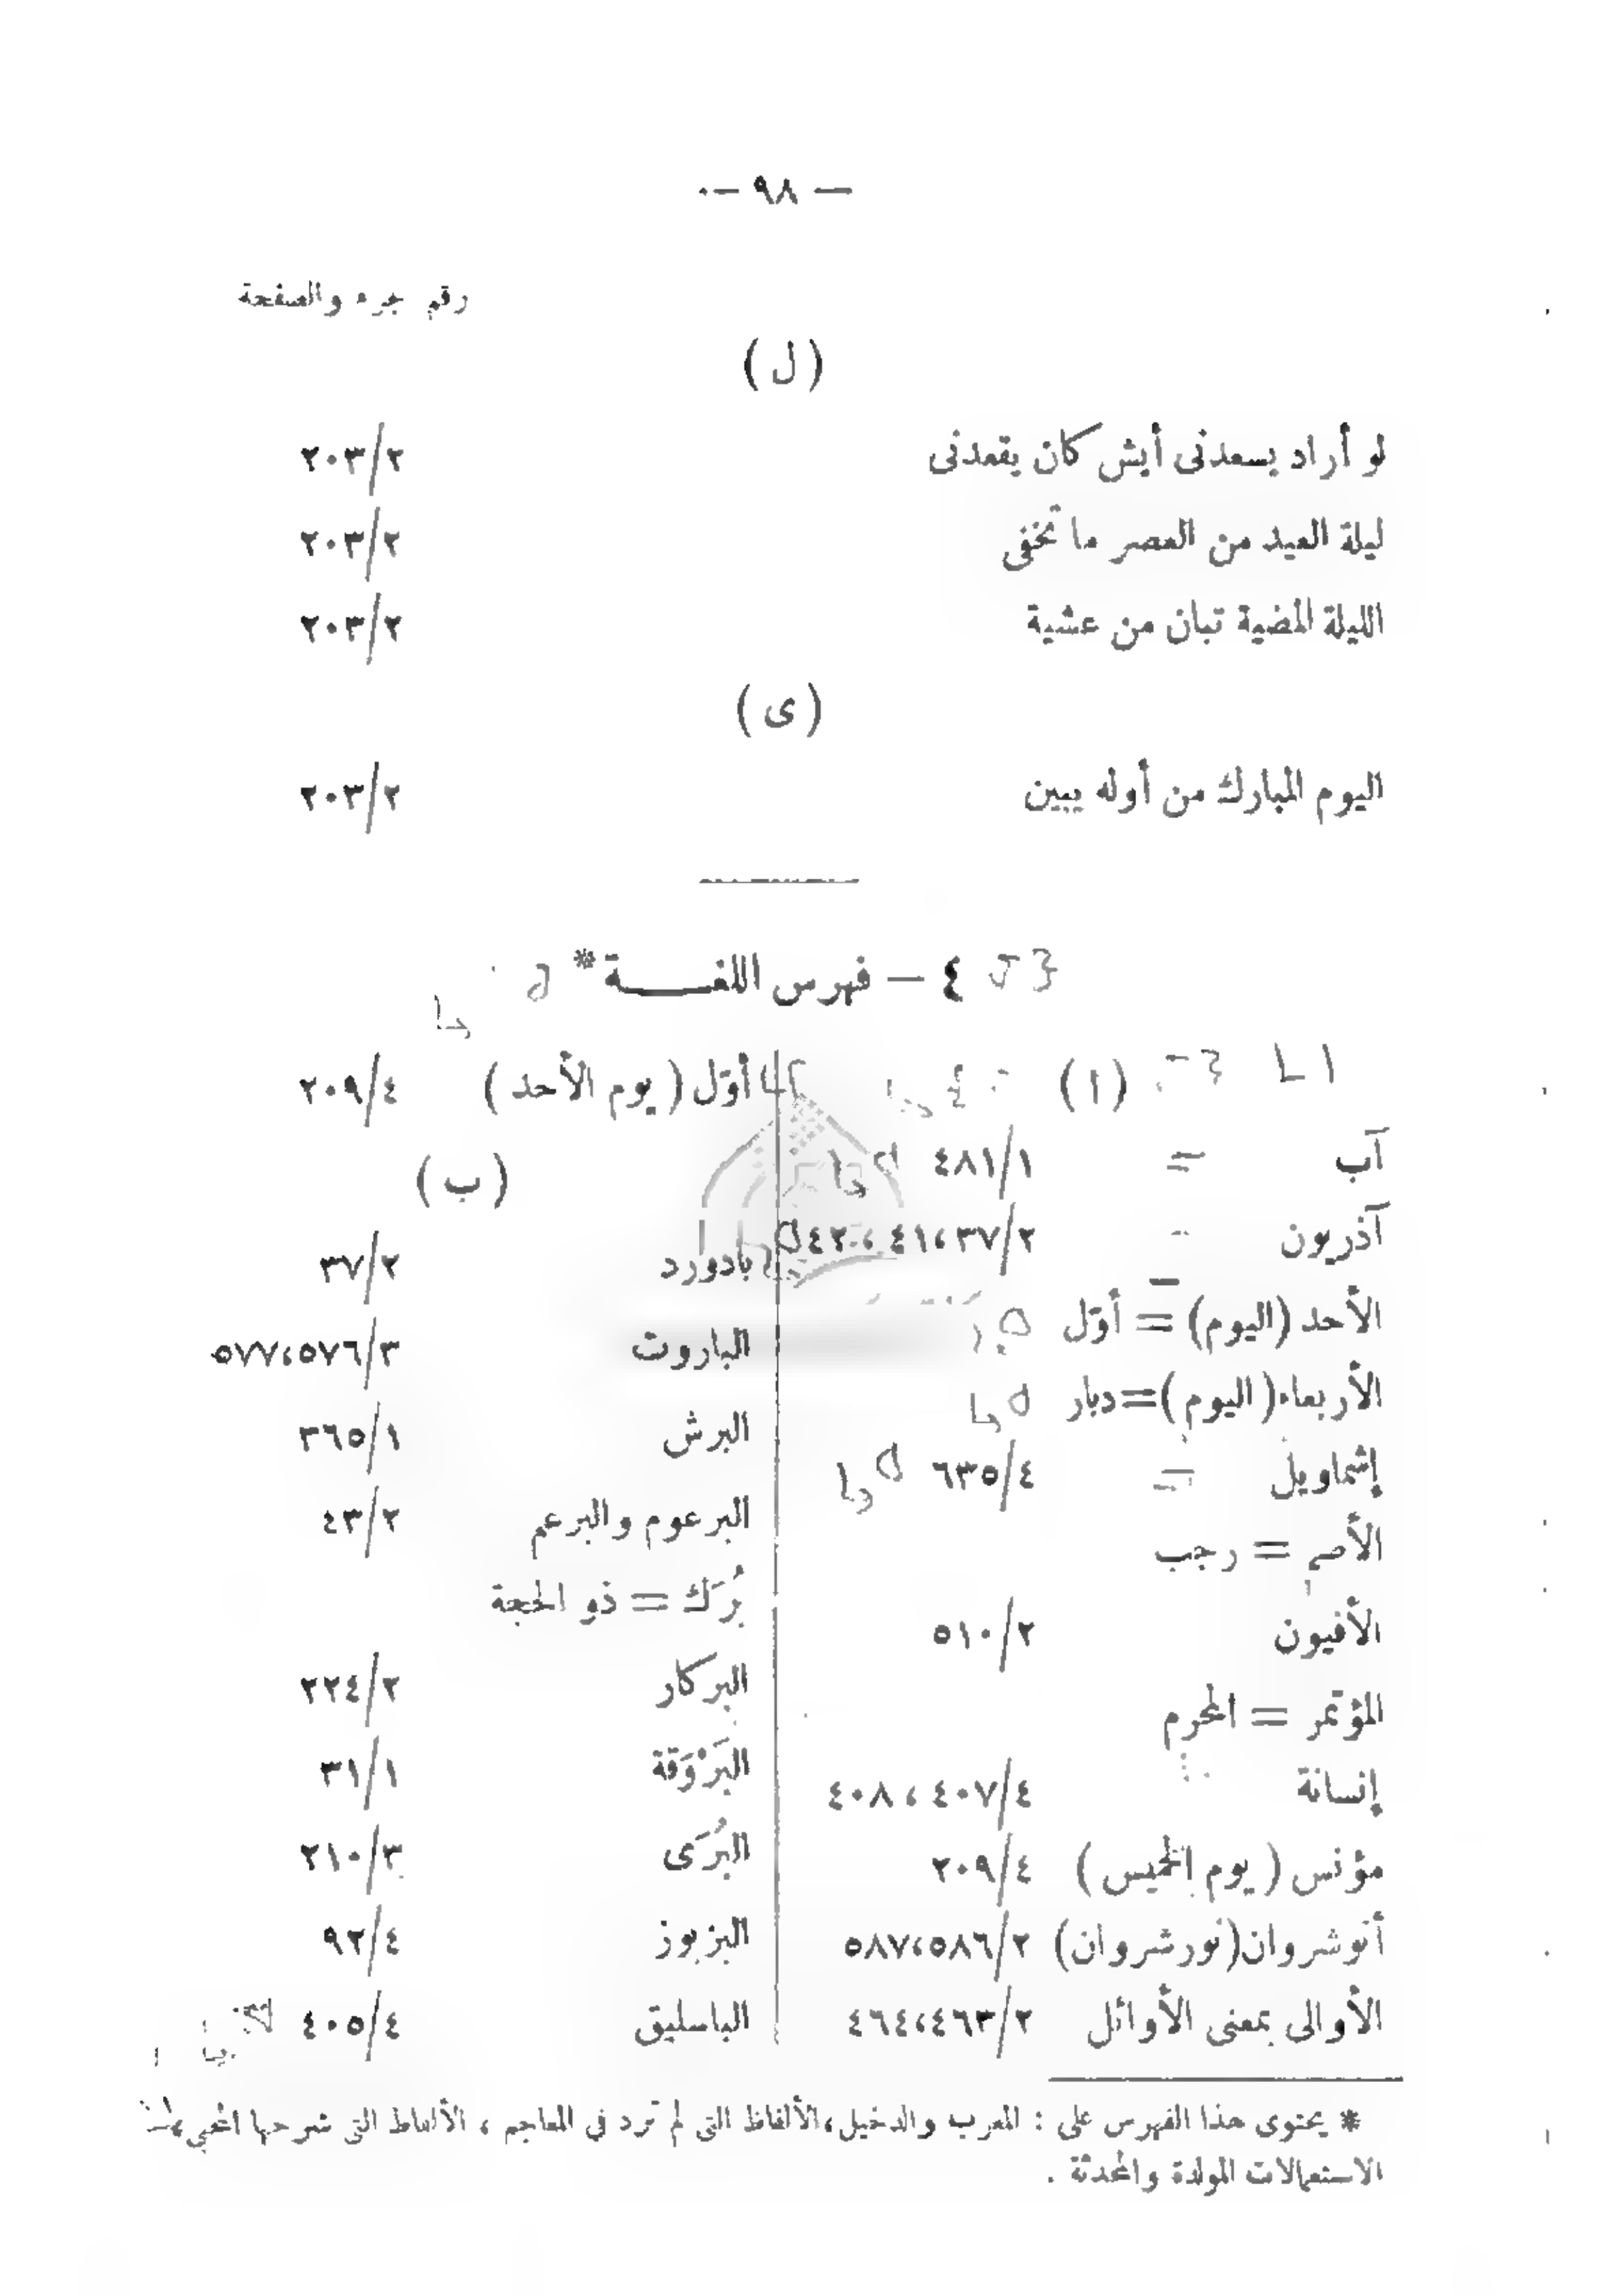 — ٩٨ —
رقم جزء والصفحة
( ل )
لو أراد يسعدنى أيش كان يقعدنى ٢٠٣/٢
ليلة العيد من العصر ما تخفى ٢٠٣/٢
الليلة المضية تبان من عشية ٢٠٣/٢
( ى )
اليوم المبارك من أوله يبين ٢٠٣/٢
٤ — فهرس اللغة*
( ا )
آب = ٤٨١/١
آذريون ٣٧/٢، ٤١، ٤٢
الأحد (اليوم) = أوّل
الأربعاء (اليوم) = دبار
إشماويل = ٦٣٥/٤
الأصم = رجب
الأفيون ٥١٠/٢
المؤتمر = المحرم
إنسانة ٤٠٧/٤، ٤٠٨
مؤنس ( يوم الخميس ) ٢٠٩/٤
أنوشروان (نورشروان) ٥٨٦/٢، ٥٨٧
الأوالى بمعنى الأوائل ٤٦٣/٢، ٤٦٤
أوّل ( يوم الأحد ) ٢٠٩/٤
( ب )
بادورد ٣٧/٢
الباروت ٥٧٦/٣، ٥٧٧
البرش ٣٦٥/١
البرعوم والبرعم ٤٣/٢
بُرَك = ذو الحجة
البركار ٢٢٤/٢
البَرْوَقة ٣١/١
البُرَى ٢١٠/٣
البزبوز ٩٢/٤
الباسليق ٤٠٥/٤
* يحتوى هذا الفهرس على : المعرب والدخيل، الألفاظ التى لم ترد في المعاجم ، الألفاظ التى شرحها المحبي،
الاستعمالات المولدة والمحدثة .